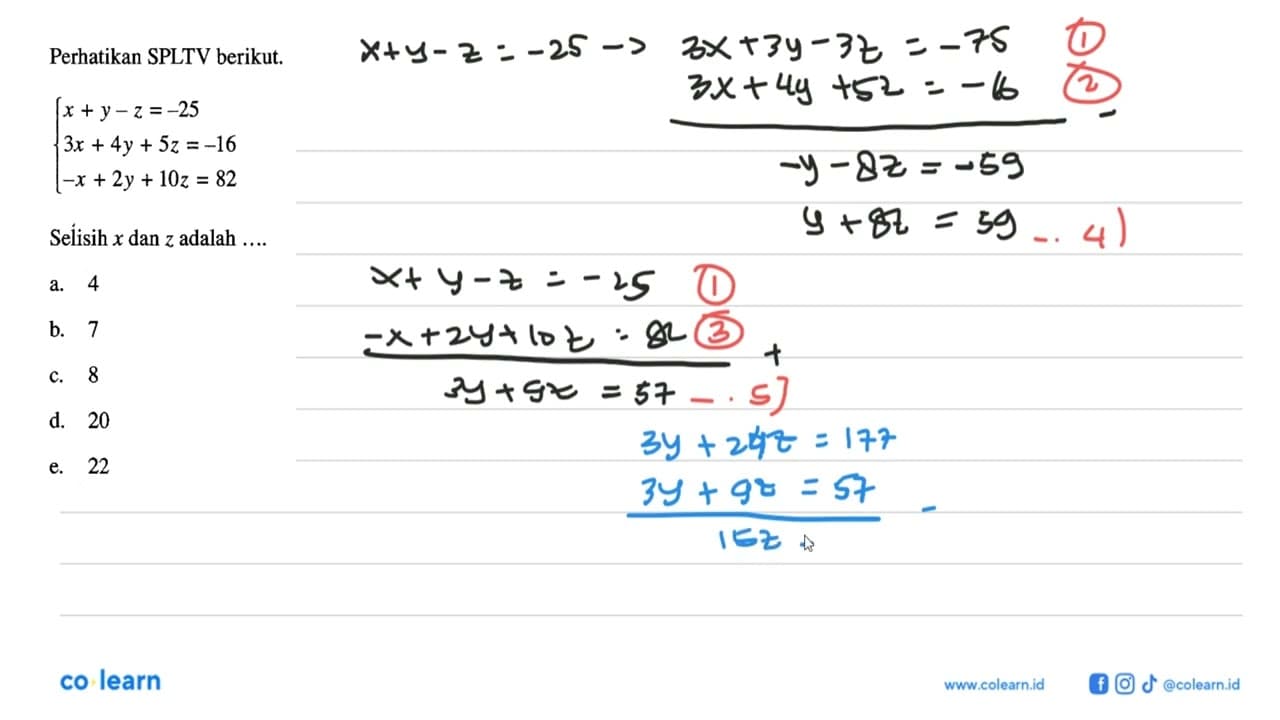 Perhatikan SPLTV berikut.
x + y – z = –25
3x + 4y + 5z = –16
–x + 2y + 10z = 82
Selisih x dan z adalah ....
a. 4
b. 7
c. 8
d. 20
e. 22
x+y-z=-25 -> 3x+3y-3z=-75 ①
3x+4y+5z=-16 ②
-
-y-8z=-59
y+8z=59 -.. 4)
x+y-z=-25 ①
-x+2y+10z=82 ③
+
3y+9z=57 -.. 5)
3y+24z=177
3y+9z=57
-
15z
co learn
www.colearn.id
@colearn.id